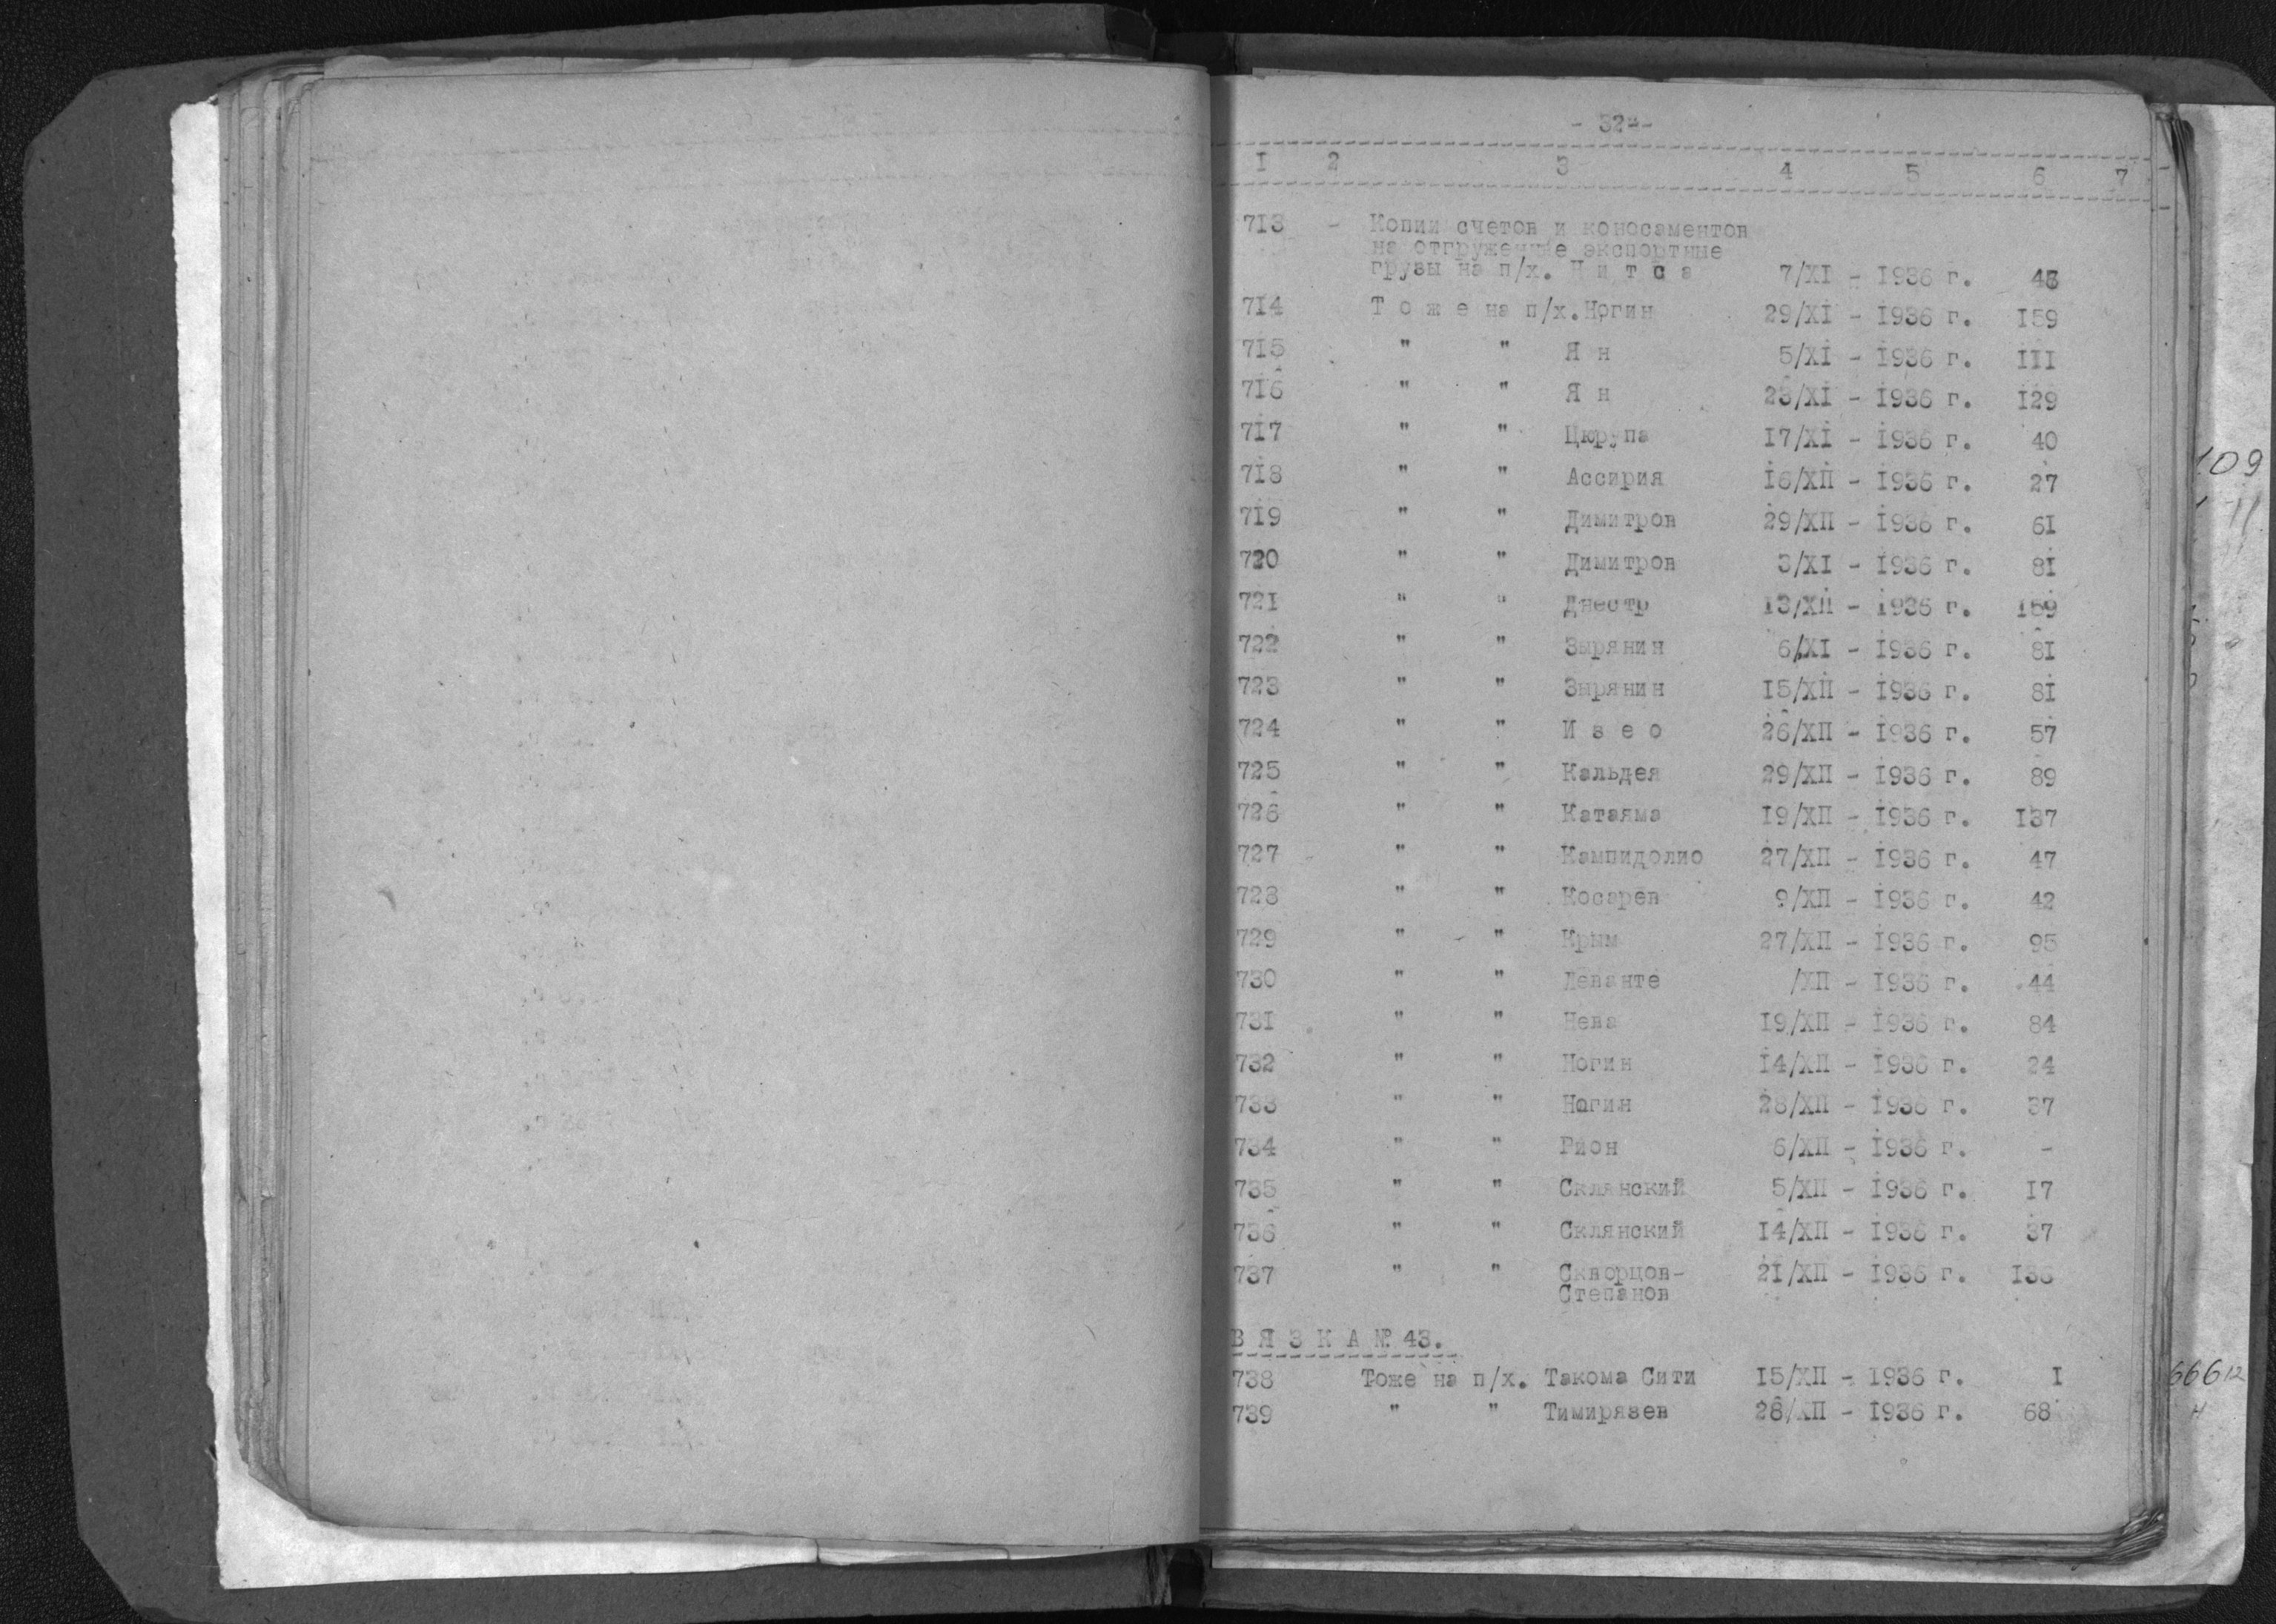 - 32 -
I 2 3 4 5 6 7
713 - Копии счетов и коносаментов
на отгруженные экспортные
грузы на п/х. Н и т с а 7/XI - 1936 г.
714 Т о ж е на п/х. Ногин 29/XI - 1936 г. 159
715 " " Я н 5/XI - 1936 г. III
716 " " Я н 23/XI - 1936 г. 129
717 " " Цюрупа 17/XI - 1936 г. 40
718 " " Ассирия 16/XII - 1936 г. 27
719 " " Димитров 29/XII - 1936 г. 61
720 " " Димитров 3/XI - 1936 г. 81
721 " " Днестр 13/XII - 1936 г. 159
722 " " Зырянин 6/XI - 1936 г. 81
723 " " Зырянин 15/XII - 1936 г. 81
724 " " И з е о 26/XII - 1936 г. 57
725 " " Кальдея 29/XII - 1936 г. 89
726 " " Катаяма 19/XII - 1936 г. 137
727 " " Кампидолио 27/XII - 1936 г. 47
728 " " Косарев 9/XII - 1936 г. 42
729 " " Крым 27/XII - 1936 г. 95
730 " " Леванте /XII - 1936 г. 44
731 " " Нева 19/XII - 1936 г. 84
732 " " Ногин 14/XII - 1936 г. 24
733 " " Ногин 28/XII - 1936 г. 37
734 " " Рион 6/XII - 1936 г. -
735 " " Склянский 5/XII - 1936 г. 17
736 " " Склянский 14/XII - 1936 г. 37
737 " " Скворцов- 21/XII - 1936 г.
Степанов
В Я З К А № 43.
738 Тоже на п/х. Такома Сити 15/XII - 1936 г. I
739 " " Тимирязев 28/XII - 1936 г. 68
109